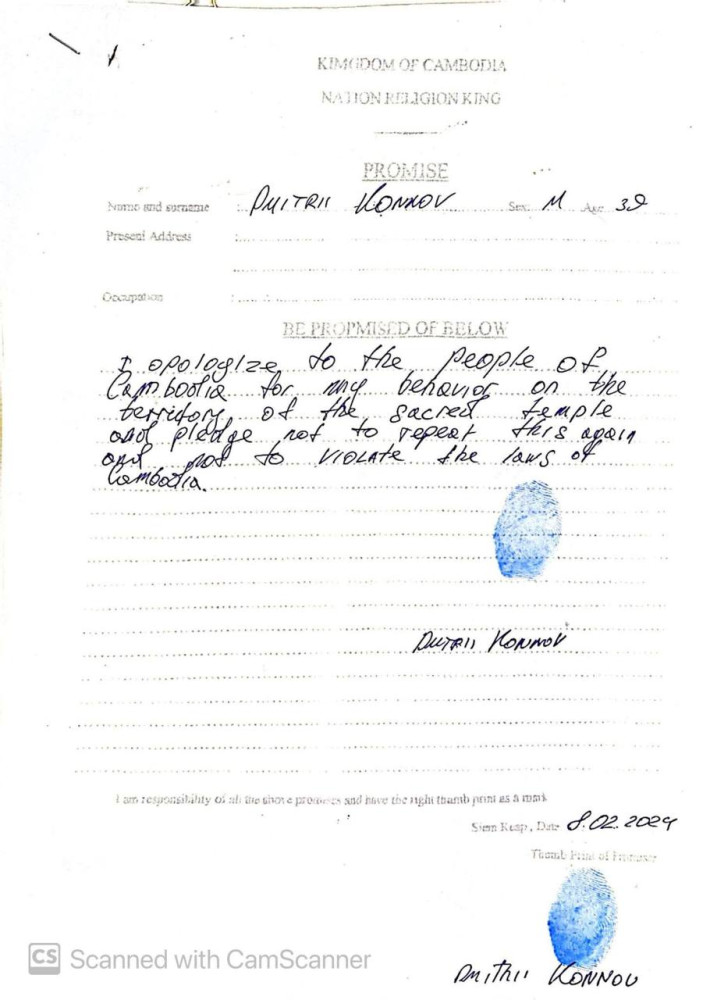 KIMGDOM OF CAMBODIA
NATION RELIGION KING
PROMISE
Name and surname : DMITRII KONNOV Sex: M Age: 39
Present Address :
Occupation :
BE PROPMISED OF BELOW
I apologize to the people of
Cambodia for my behavior on the
territory of the sacred temple
and pledge not to repeat this again
and not to violate the laws of
Cambodia.
DMITRII KONNOV
I am responsibility of all the above promises and have the right thumb print as a mark
Siem Reap, Date 8.02.2024
Thumb Print of Promiser
CS Scanned with CamScanner
DMITRII KONNOV